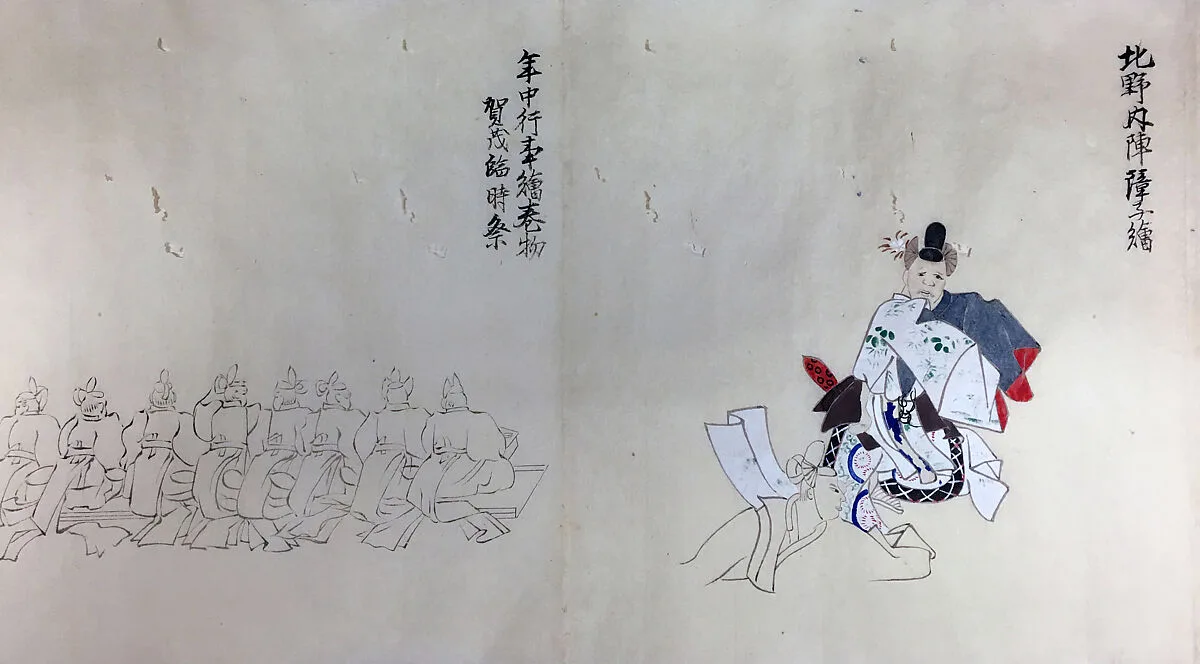 北野内陣障子繪
年中行事繪巻物
賀茂臨時祭